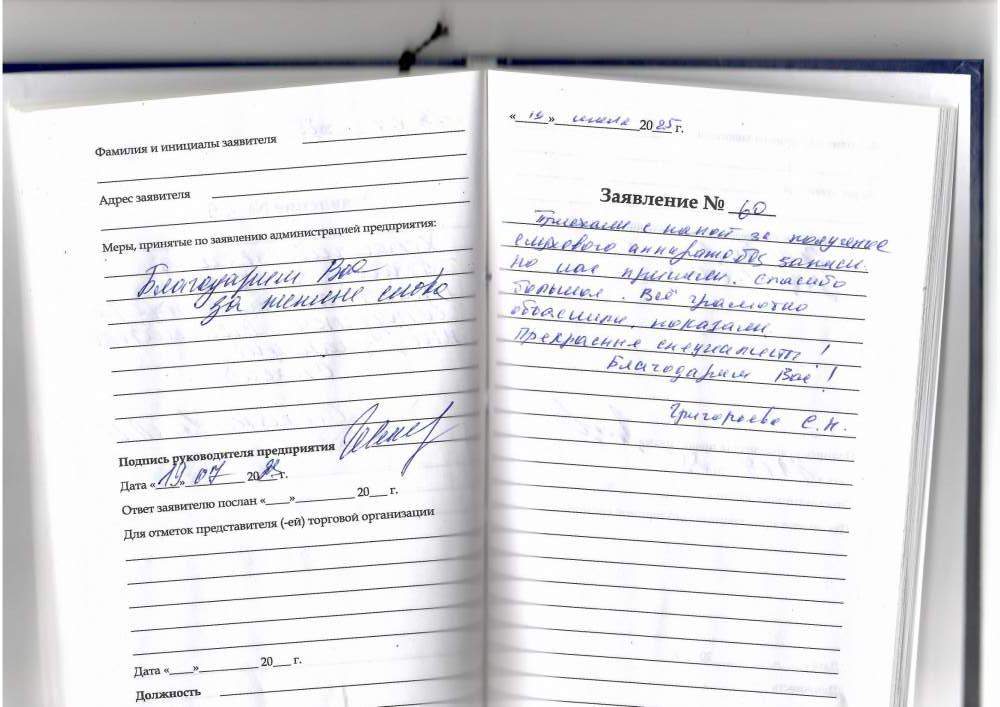 Фамилия и инициалы заявителя
Адрес заявителя
Меры, принятые по заявлению администрацией предприятия:
Благодарим Вас
за теплые слова
Подпись руководителя предприятия
Дата «19» 07 20 г.
Ответ заявителю послан «____»__________ 20___ г.
Для отметок представителя (-ей) торговой организации
Дата «____»__________ 20___ г.
Должность
«19» июля 2025 г.
Заявление № 60
Приехали с мамой за получение
слухового аппарата без записи.
Но нас приняли. Спасибо
большое. Всё грамотно
объяснили, показали
Прекрасные специалисты!
Благодарим Вас!
Григорьева С.Н.